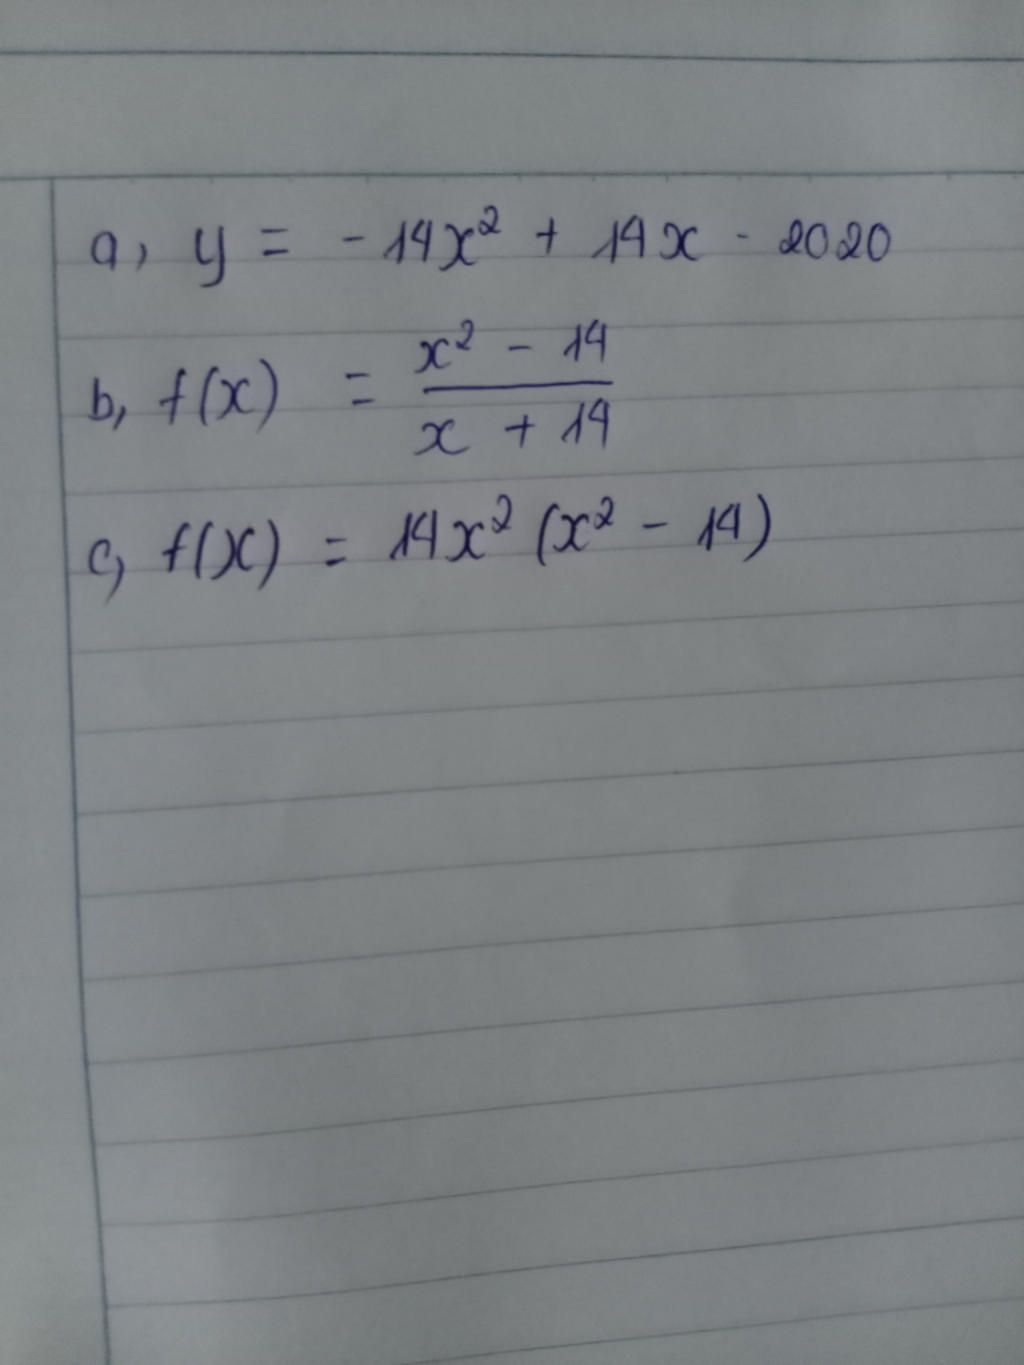 a, y = - 14x² + 14x - 2020
b, f(x) = (x² - 14)/(x + 14)
c, f(x) = 14x² (x² - 14)